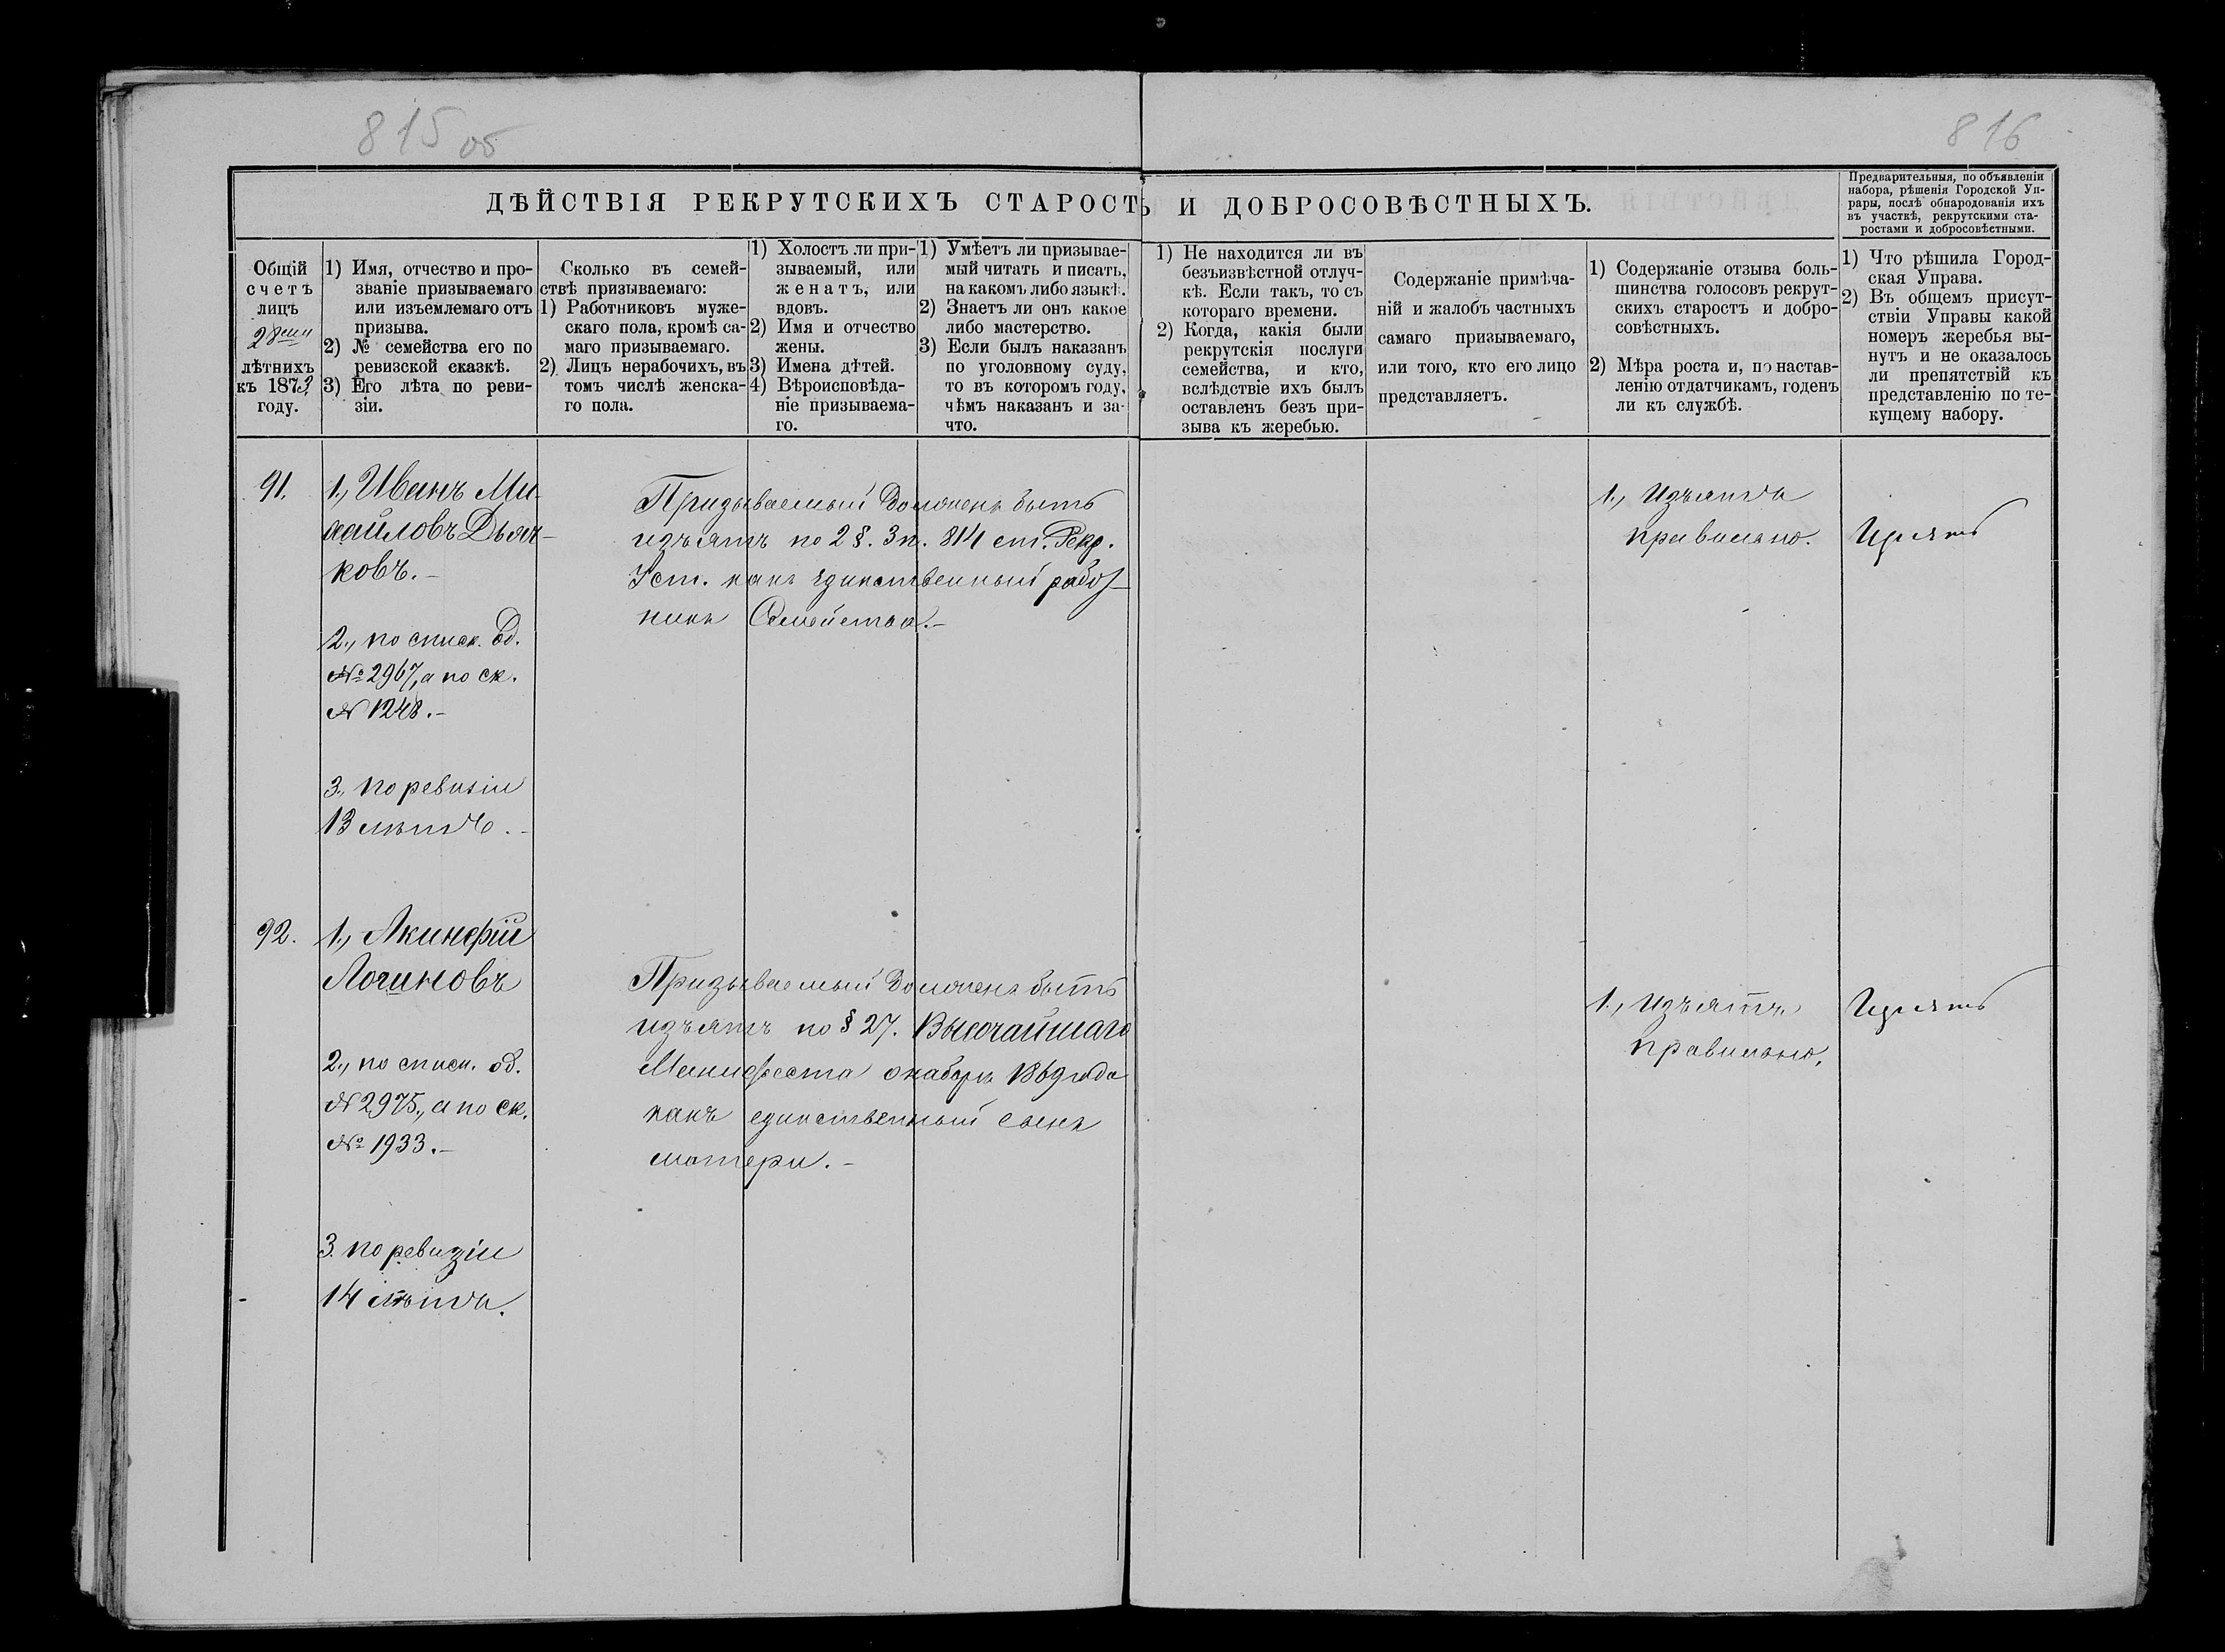 815 об
816
ДѢЙСТВІЯ РЕКРУТСКИХЪ СТАРОСТЪ И ДОБРОСОВѢСТНЫХЪ.
Предварительныя, по объявленіи
набора, рѣшенія Городской Уп-
равы, послѣ обнародованія ихъ
въ участкѣ, рекрутскими ста-
ростами и добросовѣстными.
Общій
счетъ
лицъ
28ми
лѣтнихъ
къ 1873
году.
1) Имя, отчество и про-
званіе призываемаго
или изъемлемаго отъ
призыва.
2) № семейства его по
ревизской сказкѣ.
3) Его лѣта по реви-
зіи.
Сколько въ семей-
ствѣ призываемаго:
1) Работниковъ муже-
скаго пола, кромѣ са-
маго призываемаго.
2) Лицъ нерабочихъ, въ
томъ числѣ женска-
го пола.
1) Холостъ ли при-
зываемый, или
женатъ, или
вдовъ.
2) Имя и отчество
жены.
3) Имена дѣтей.
4) Вѣроисповѣда-
ніе призываема-
го.
1) Умѣетъ ли призывае-
мый читать и писать,
на какомъ либо языкѣ.
2) Знаетъ ли онъ какое
либо мастерство.
3) Если былъ наказанъ
по уголовному суду,
то въ которомъ году,
чѣмъ наказанъ и за-
что.
1) Не находится ли въ
безъизвѣстной отлуч-
кѣ. Если такъ, то съ
котораго времени.
2) Когда, какія были
рекрутскія послуги
семейства, и кто,
вслѣдствіе ихъ былъ
оставленъ безъ при-
зыва къ жеребью.
Содержаніе примѣча-
ній и жалобъ частныхъ
самаго призываемаго,
или того, кто его лицо
представляетъ.
1) Содержаніе отзыва боль-
шинства голосовъ рекрут-
скихъ старостъ и добро-
совѣстныхъ.
2) Мѣра роста и, по настав-
ленію отдатчикамъ, годенъ
ли къ службѣ.
1) Что рѣшила Город-
ская Управа.
2) Въ общемъ присут-
ствіи Управы какой
номеръ жеребья вы-
нутъ и не оказалось
ли препятствій къ
представленію по те-
кущему набору.
91.
1., Иванъ Ми-
хайловъ Дьяч-
ковъ.–
2., по списк. об.
№ 2967, а по ск.
№ 1248.–
3., по ревизіи
13 лѣтъ.–
Призываемый долженъ быть
изъятъ по 2 §. 3 п. 814 ст. Рекр.
Уст. какъ единственный работ-
никъ Семейства.–
1., Изъятъ
правильно.
Изъять
92.
1., Акинфій
Логиновъ
2., по списк. об.
№ 2975., а по ск.
№ 1933.–
3. по ревизіи
14 лѣтъ.
Призываемый долженъ быть
изъятъ по § 27. Высочайшаго
Манифеста о наборѣ 1869 года
какъ единственный сынъ
матери.–
1., Изъятъ
правильно.
Изъять